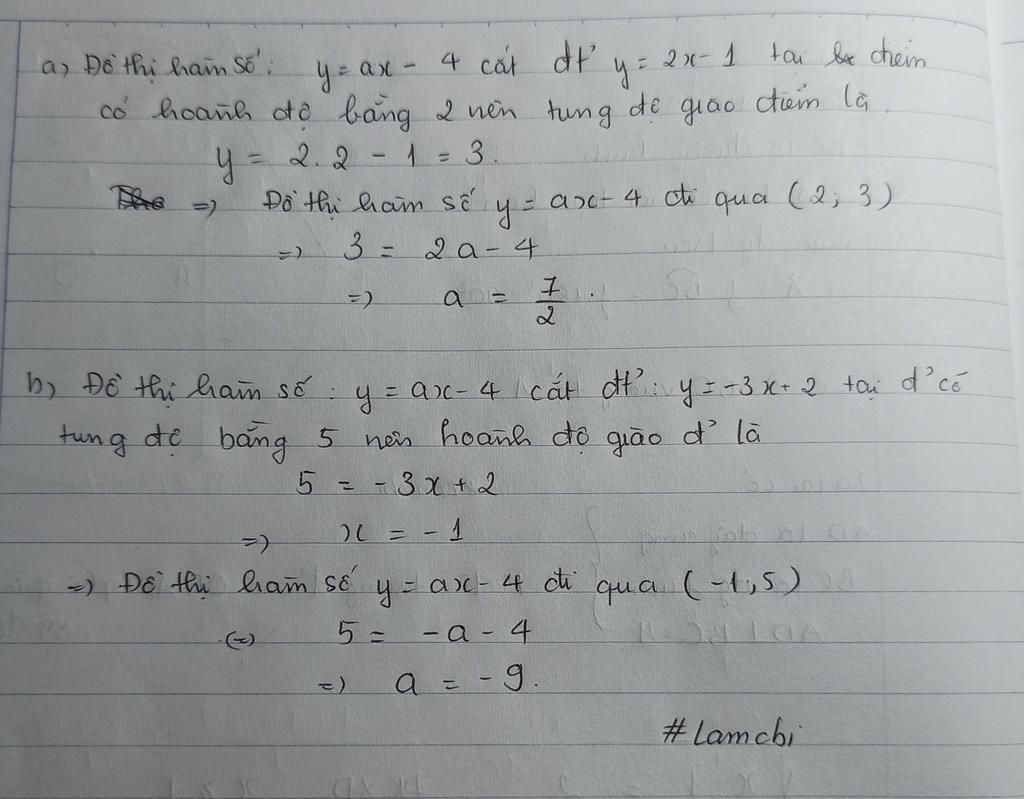 a) Đồ thị hàm số: y = ax - 4 cắt đt' y = 2x - 1 tại điểm
có hoành độ bằng 2 nên tung độ giao điểm là
y = 2.2 - 1 = 3.
=> Đồ thị hàm số y = ax - 4 đi qua (2; 3)
=> 3 = 2a - 4
=> a = 7/2.
b) Đồ thị hàm số: y = ax - 4 cắt đt': y = -3x + 2 tại đ' có
tung độ bằng 5 nên hoành độ giao đ' là
5 = -3x + 2
=> x = -1
=> Đồ thị hàm số y = ax - 4 đi qua (-1; 5)
(=) 5 = -a - 4
=> a = -9.
#Lamchi